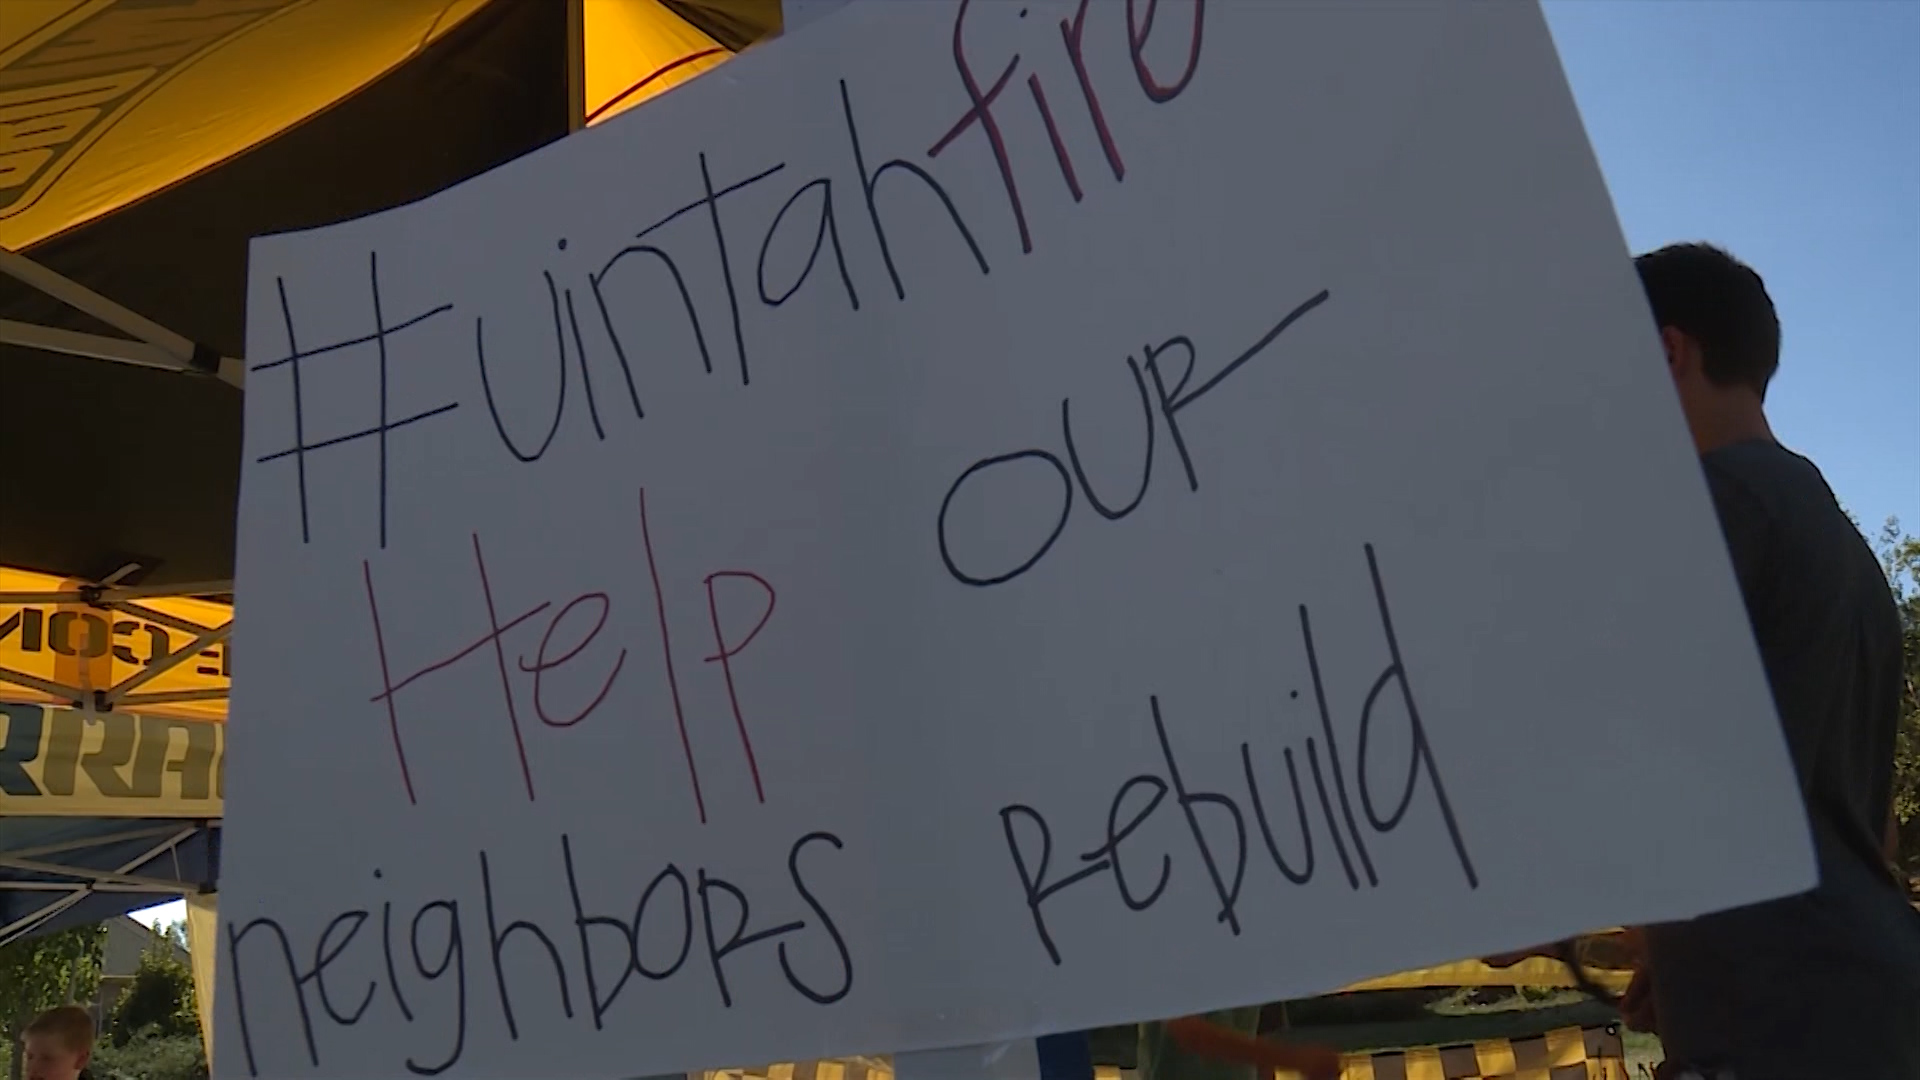 #uintahfire
Help our
neighbors rebuild